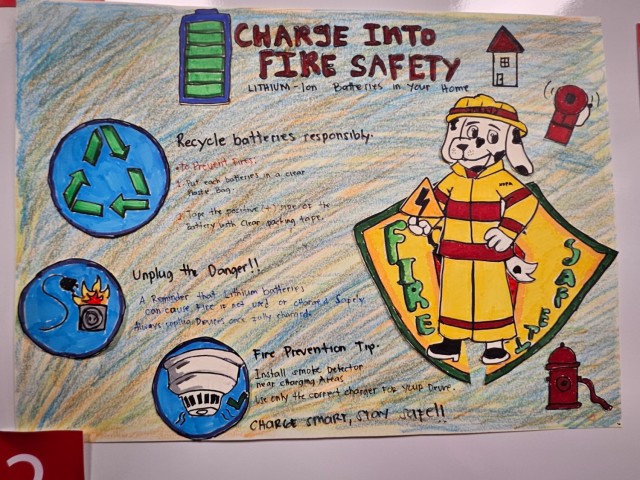 CHARGE INTO
FIRE SAFETY
LITHIUM-Ion Batteries in Your Home
Recycle batteries responsibly.
to Prevent Fires:
1. Put each batteries in a clear
Plastic Bag.
2. Tape the positive (+) side of the
Battery with Clear packing tape.
NFPA
FIRE
SAFETY
Unplug the Danger!!
A Reminder that Lithium batteries
can cause Fire if not used or charged safely.
Always unplug Devices once fully charged.
Fire Prevention Tip.
Install smoke Detector
near charging Areas
Use only the correct charger for your Device.
CHARGE SMART, Stay Safe!!
2